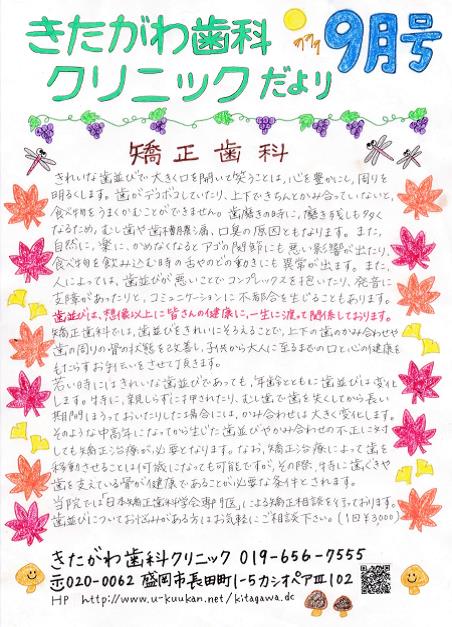 きたがわ歯科
9月号
クリニックだより
矯正歯科
きれいな歯並びで大きく口を開いて笑うことは、心を豊かにし、周りを
明るくします。歯がデコボコしていたり、上下できちんとかみ合っていないと、
食べ物をうまくかむことができません。歯磨きの時に、磨き残しも多く
なるため、むし歯や歯槽膿漏、口臭の原因ともなります。また、
自然に、楽に、かめなくなるとアゴの関節にも悪い影響が出たり、
食べ物を飲み込む時の舌やのどの動きにも異常が出ます。また、
人によっては、歯並びが悪いことでコンプレックスを抱いたり、発音に
支障があったりと、コミュニケーションに不都合を生じることもあります。
歯並びは、想像以上に皆さんの健康に、一生に渡って関係しております。
矯正歯科では、歯並びをきれいにそろえることで、上下の歯のかみ合わせや
歯の周りの骨の状態を改善し、子供から大人に至るまでの口と心の健康を
もたらすお手伝いをさせて頂きます。
若い時にはきれいな歯並びであっても、年齢とともに歯並びは変化
します。特に、親しらずに押されたり、むし歯で歯を失くしてから長い
期間ほうっておいたりした場合には、かみ合わせは大きく変化します。
そのような中高年になってから生じた歯並びやかみ合わせの不正に対
しても矯正治療が必要となります。なお、矯正治療によって歯を
移動させることは何歳になっても可能ですが、その際、特に歯ぐきや
歯を支えている骨が健康であることが必要な条件とされます。
当院では「日本矯正歯科学会専門医」による矯正相談を行っております。
歯並びについてお悩みがある方はお気軽にご相談下さい。(1回¥3000)
きたがわ歯科クリニック 019-656-7555
〒020-0062 盛岡市長田町1-5カシオペアⅢ102
HP http://www.u-kuukan.net/kitagawa.dc